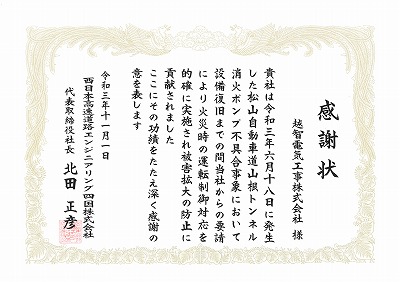 感謝状
越智電気工事株式会社 様
貴社は令和三年六月十八日に発生
した松山自動車道山根トンネル
消火ポンプ不具合事象において
設備復旧までの間当社からの要請
により火災時の運転制御対応を
的確に実施され被害拡大の防止に
貢献されました
ここにその功績をたたえ深く感謝の
意を表します
令和三年十一月一日
西日本高速道路エンジニアリング四国株式会社
代表取締役社長 北田 正彦